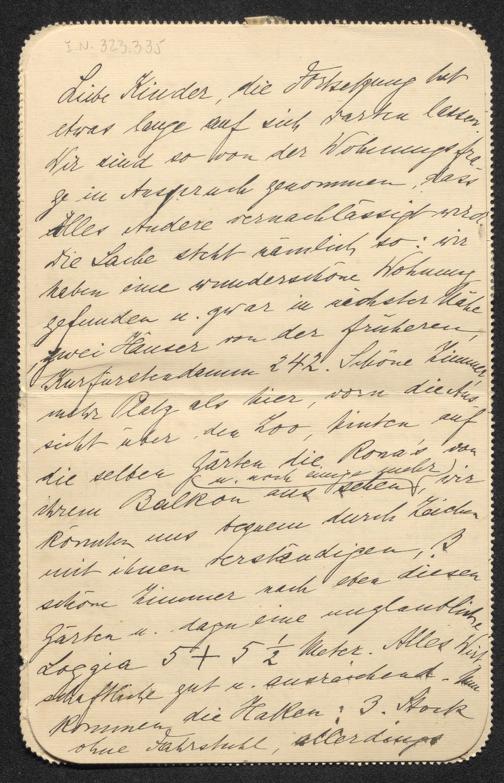 I.N. 323.335
Liebe Kinder, die Fortsetzung hat
etwas lange auf sich warten lassen.
Wir sind so von der Wohnungsfra-
ge in Anspruch genommen, dass
Alles Andere vernachlässigt wird.
Die Sache steht nämlich so: wir
haben eine wunderschöne Wohnung
gefunden u. zwar in nächster Nähe
der früheren,
zwei Häuser von
Kurfürstendamm 242. Schöne Zimmer,
mehr Platz als hier, vorn die Aus-
sicht über den Zoo, hinten auf
die selben Gärten die Rona's von
(u. noch einige mehr)
ihrem Balkon aus sehen, wir
könnten uns bequem durch Zeichen
mit ihnen verständigen, 3
schöne Zimmer nach eben diesen
Gärten u. dazu eine unglaubliche
Loggia 5 + 5 1/2 Meter. Alles Wirt-
schaftliche gut u. ausreichend. Nun
kommen die Haken: 3. Stock
ohne Fahrstuhl, allerdings